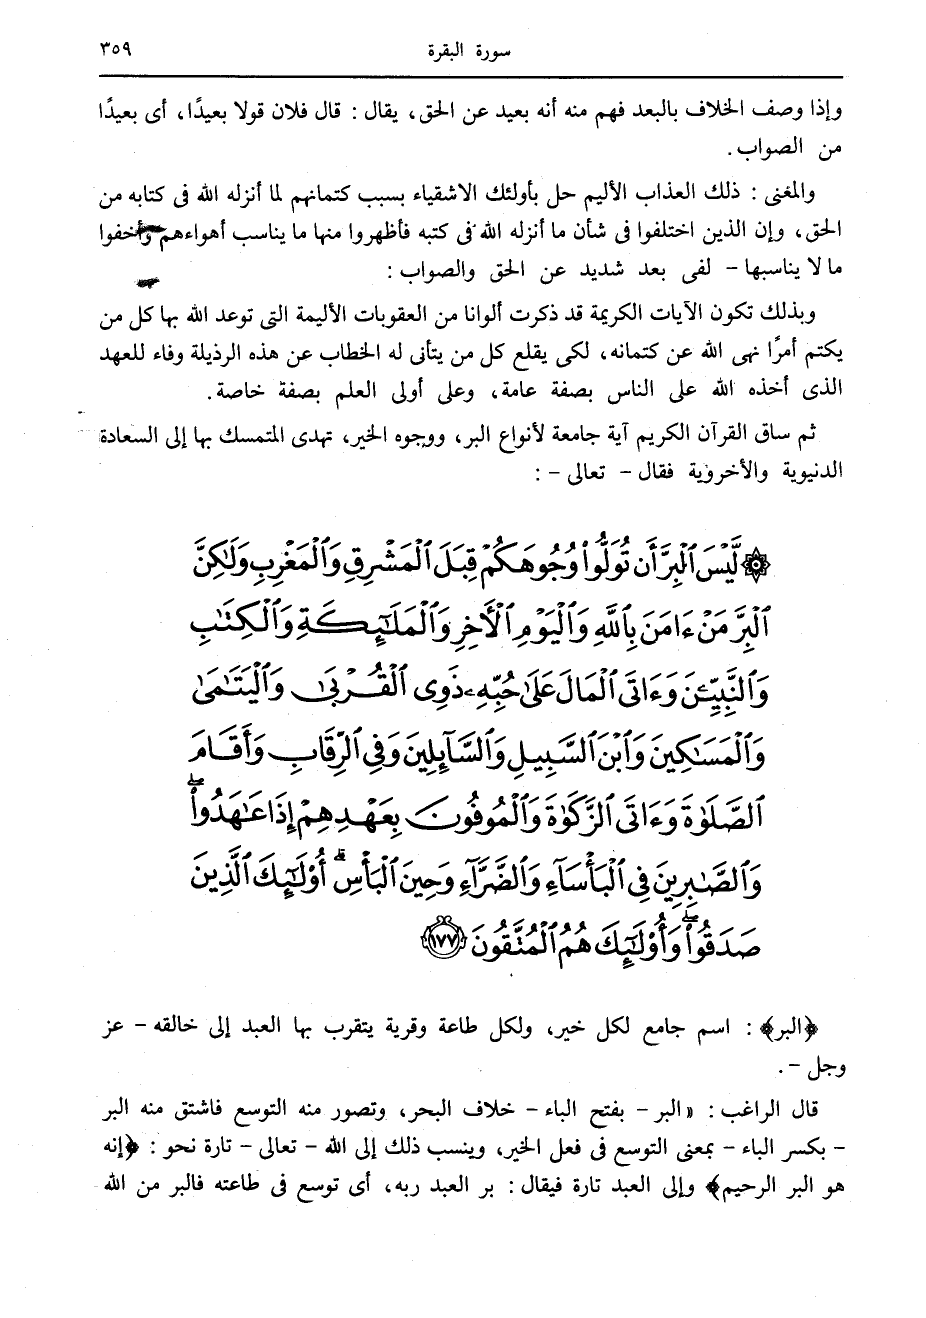 سورة البقرة ٣٥٩
وإذا وصف الخلاف بالبعد فهم منه أنه بعيد عن الحق، يقال : قال فلان قولا بعيدًا، أى بعيدًا
من الصواب.
والمغنى : ذلك العذاب الأليم حل بأولئك الاشقياء بسبب كتمانهم لما أنزله الله فى كتابه من
الحق، وإن الذين اختلفوا فى شأن ما أنزله الله فى كتبه فأظهروا منها ما يناسب أهواءهم وأخفوا
ما لا يناسبها – لفى بعد شديد عن الحق والصواب :
وبذلك تكون الآيات الكريمة قد ذكرت ألوانا من العقوبات الأليمة التى توعد الله بها كل من
يكتم أمرًا نهى الله عن كتمانه، لكى يقلع كل من يتأتى له الخطاب عن هذه الرذيلة وفاء للعهد
الذى أخذه الله على الناس بصفة عامة، وعلى أولى العلم بصفة خاصة.
ثم ساق القرآن الكريم آية جامعة لأنواع البر، ووجوه الخير، تهدى المتمسك بها إلى السعادة
الدنيوية والأخروية فقال – تعالى – :
۞ لَّيْسَ ٱلْبِرَّ أَن تُوَلُّوا۟ وُجُوهَكُمْ قِبَلَ ٱلْمَشْرِقِ وَٱلْمَغْرِبِ وَلَٰكِنَّ
ٱلْبِرَّ مَنْ ءَامَنَ بِٱللَّهِ وَٱلْيَوْمِ ٱلْأَخِرِ وَٱلْمَلَٰٓئِكَةِ وَٱلْكِتَٰبِ
وَٱلنَّبِيِّـۧنَ وَءَاتَى ٱلْمَالَ عَلَىٰ حُبِّهِۦ ذَوِى ٱلْقُرْبَىٰ وَٱلْيَتَٰمَىٰ
وَٱلْمَسَٰكِينَ وَٱبْنَ ٱلسَّبِيلِ وَٱلسَّآئِلِينَ وَفِى ٱلرِّقَابِ وَأَقَامَ
ٱلصَّلَوٰةَ وَءَاتَى ٱلزَّكَوٰةَ وَٱلْمُوفُونَ بِعَهْدِهِمْ إِذَا عَٰهَدُوا۟ۖ
وَٱلصَّٰبِرِينَ فِى ٱلْبَأْسَآءِ وَٱلضَّرَّآءِ وَحِينَ ٱلْبَأْسِۗ أُو۟لَٰٓئِكَ ٱلَّذِينَ
صَدَقُوا۟ۖ وَأُو۟لَٰٓئِكَ هُمُ ٱلْمُتَّقُونَ ﴿١٧٧﴾
﴿البر﴾ : اسم جامع لكل خير، ولكل طاعة وقربة يتقرب بها العبد إلى خالقه – عز
وجل –.
قال الراغب : «البر – بفتح الباء – خلاف البحر، وتصور منه التوسع فاشتق منه البر
– بكسر الباء – بمعنى التوسع فى فعل الخير، وينسب ذلك إلى الله – تعالى – تارة نحو : ﴿إنه
هو البر الرحيم﴾ وإلى العبد تارة فيقال : بر العبد ربه، أى توسع فى طاعته فالبر من الله